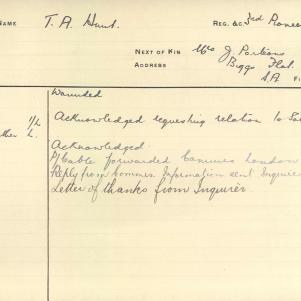 NAME T. A. Hunt. REG. &C. 3rd Pioneer
NEXT OF KIN Mrs J. Parkins
ADDRESS Biggs Flat
S.A.
Wounded
Acknowledged requesting relation to
Acknowledged
P/Cable forwarded Commrs London
Reply from Commrs. Information sent Inquirer
Letter of thanks from Inquirer